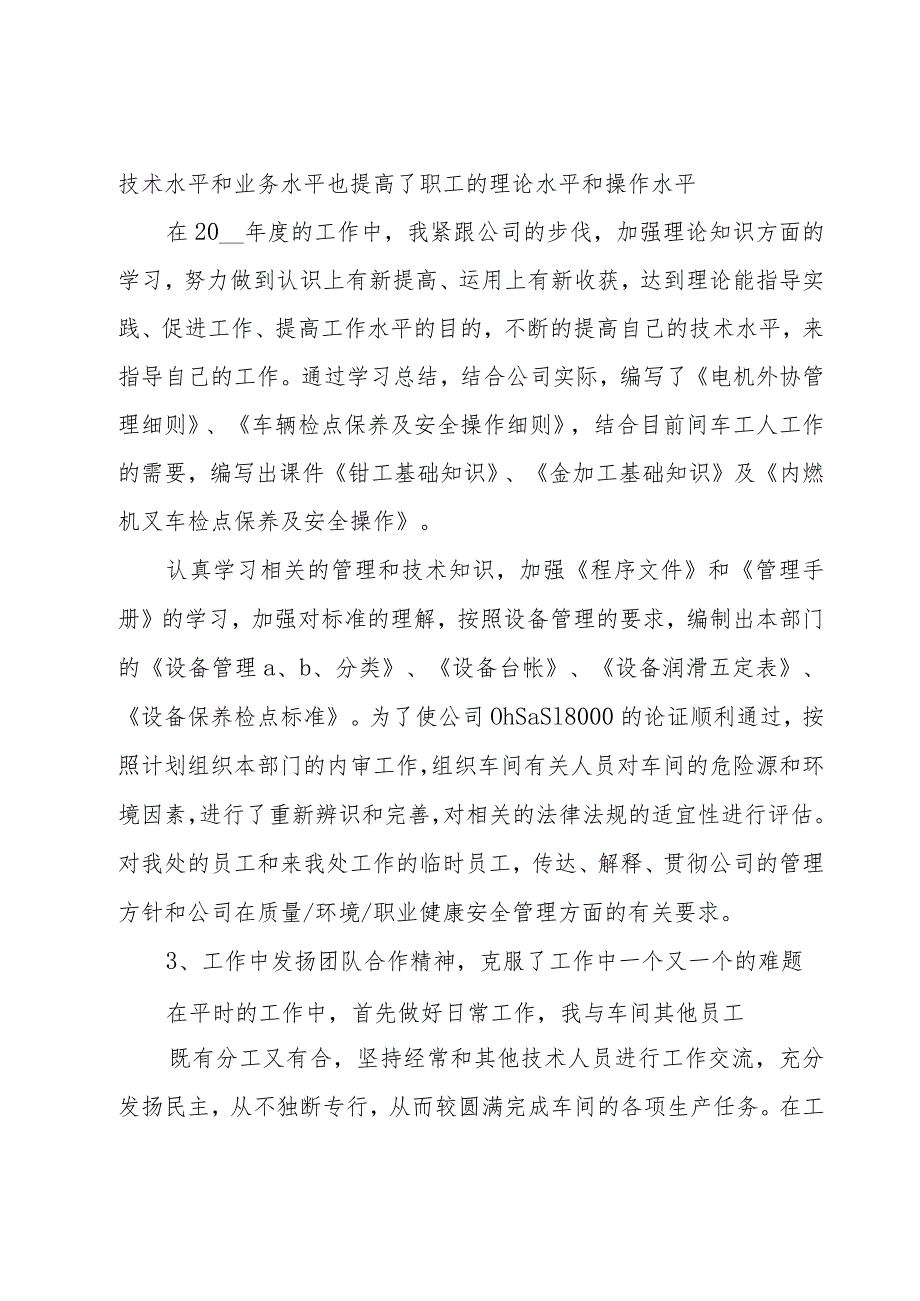 技术水平和业务水平也提高了职工的理论水平和操作水平
在20__年度的工作中，我紧跟公司的步伐，加强理论知识方面的
学习，努力做到认识上有新提高、运用上有新收获，达到理论能指导实
践、促进工作、提高工作水平的目的，不断的提高自己的技术水平，来
指导自己的工作。通过学习总结，结合公司实际，编写了《电机外协管
理细则》、《车辆检点保养及安全操作细则》，结合目前间车工人工作
的需要，编写出课件《钳工基础知识》、《金加工基础知识》及《内燃
机叉车检点保养及安全操作》。
认真学习相关的管理和技术知识，加强《程序文件》和《管理手
册》的学习，加强对标准的理解，按照设备管理的要求，编制出本部门
的《设备管理a、b、分类》、《设备台帐》、《设备润滑五定表》、
《设备保养检点标准》。为了使公司OhSaSl8000的论证顺利通过，按
照计划组织本部门的内审工作，组织车间有关人员对车间的危险源和环
境因素，进行了重新辨识和完善，对相关的法律法规的适宜性进行评估。
对我处的员工和来我处工作的临时员工，传达、解释、贯彻公司的管理
方针和公司在质量/环境/职业健康安全管理方面的有关要求。
3、工作中发扬团队合作精神，克服了工作中一个又一个的难题
在平时的工作中，首先做好日常工作，我与车间其他员工
既有分工又有合，坚持经常和其他技术人员进行工作交流，充分
发扬民主，从不独断专行，从而较圆满完成车间的各项生产任务。在工